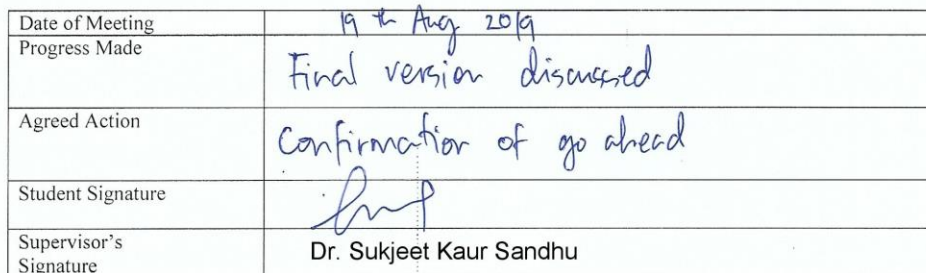 Date of Meeting 19th Aug 2019
Progress Made
Final version discussed
Agreed Action
Confirmation of go ahead
Student Signature
Supervisor's Dr. Sukjeet Kaur Sandhu
Signature